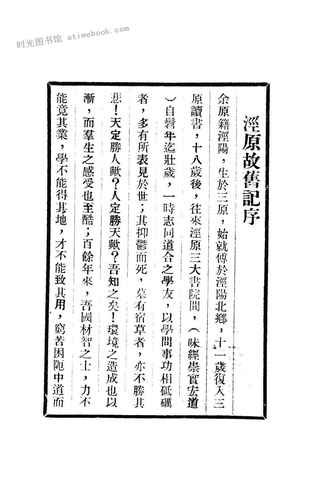 时光图书馆 atimebook.com
涇原故舊記序
余原籍涇陽，生於三原，始就傅於涇陽北鄉，十一歲復入三
原讀書，十八歲後，往來涇原三大書院間，（味經崇實宏道
）自髫年迄壯歲，一時志同道合之學友，以學問事功相砥礪
者，多有所表見於世；其抑鬱而死，墓有宿草者，亦不勝其
悲！天定勝人歟？人定勝天歟？吾知之矣！環境之造成也以
漸，而羣生之感受也至酷；百餘年來，吾國材智之士，力不
能竟其業，學不能得其地，才不能致其用，窮若困阨中道而